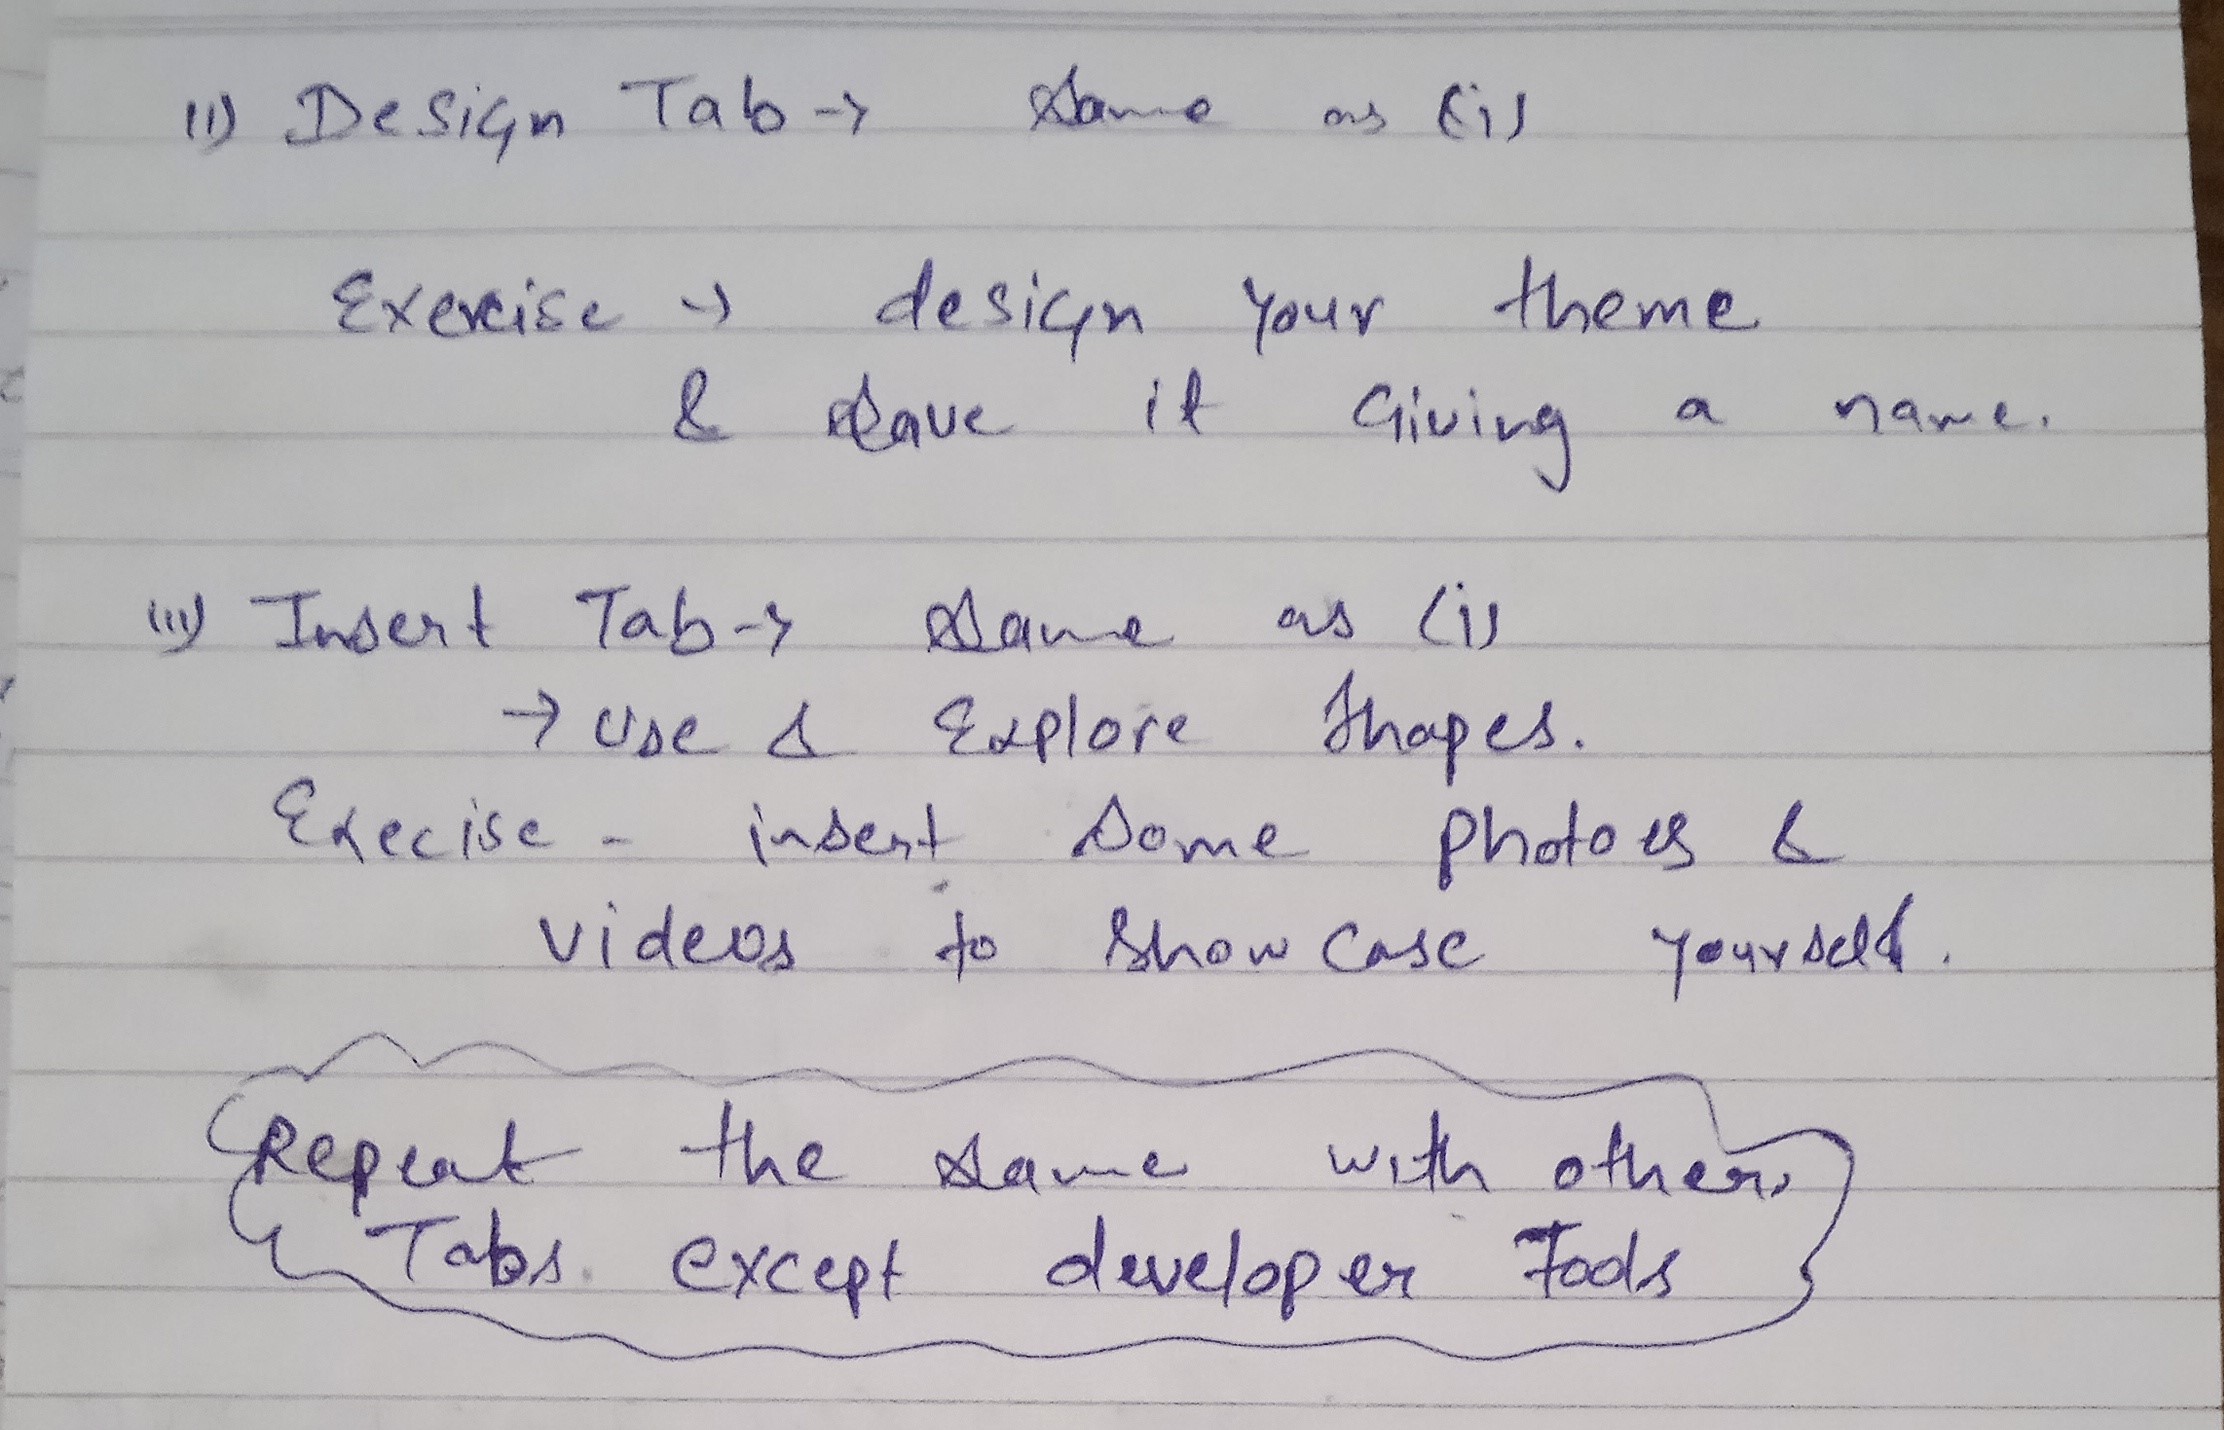 ii) Design Tab → Same as (i)
Exercise → design your theme
& Save it Giving a name.
iii) Insert Tab → Same as (i)
→ Use & Explore Shapes.
Execise - insert Some photoes &
videos to Show Case yourself.
Repeat the Same with other
Tabs. except developer Tools